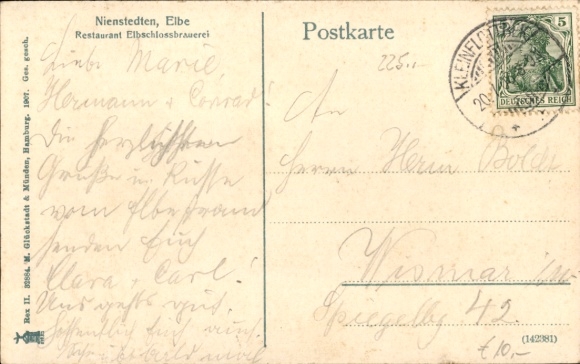 Nienstedten, Elbe
Restaurant Elbschlossbrauerei
Postkarte
225.-
5
DEUTSCHES REICH
Liebe Marie,
Hermann + Conrad!
Die herzlichsten
Grüße u. Küsse
vom Elbestrand
senden Euch
Clara + Carl!
Uns gehts gut.
Hoffentlich Euch auch.
An
Herrn Herm Boldt
Wismar i/M
Spiegelbg 42.
(142381)
€10,-
Rex II. 82884. M. Glückstadt & Münden, Hamburg. 1907. Ges. gesch.